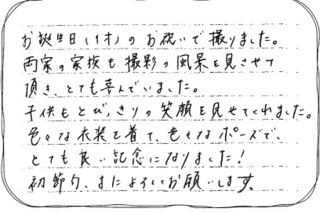 お誕生日(1才)のお祝いで撮りました。
両家の家族も撮影の風景を見させて
頂き、とても喜んでいました。
子供もとびっきりの笑顔を見せてくれました。
色々な衣装を着て、色々なポーズで、
とても良い記念になりました!
初節句、またよろしくお願いします。